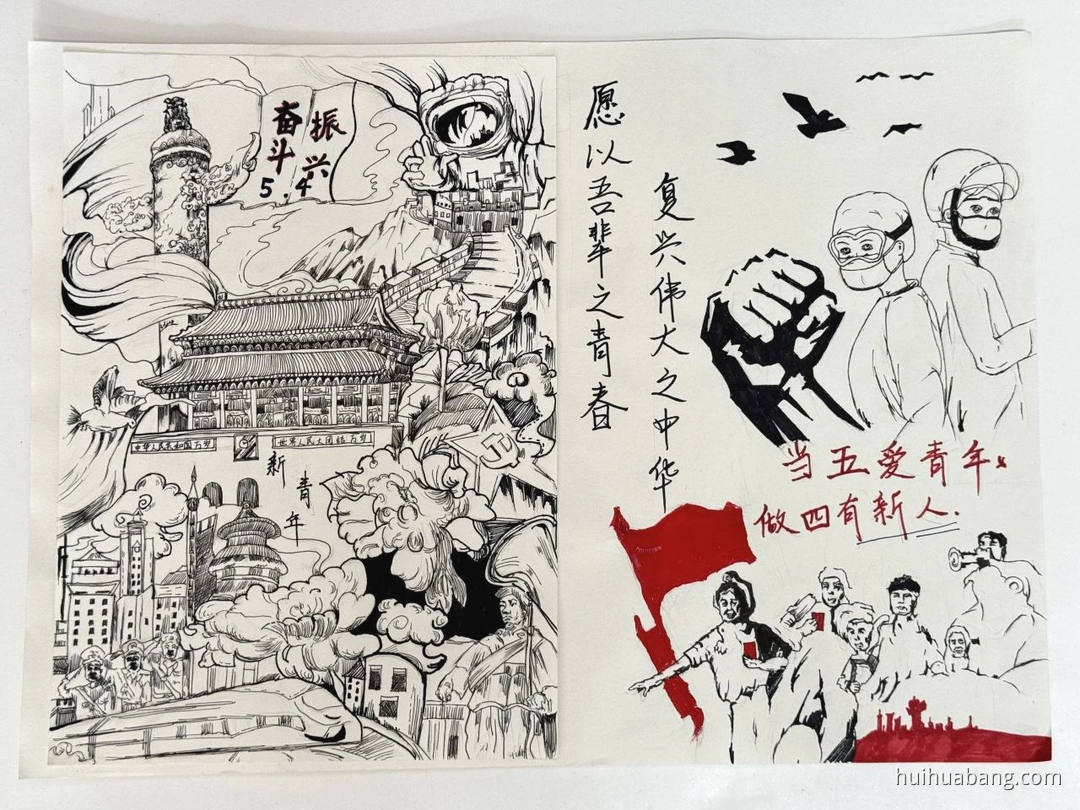 振兴
奋斗
5.4
中华人民共和国万岁
世界人民大团结万岁
新青年
愿以吾辈之青春
复兴伟大之中华
当五爱青年,
做四有新人.
huihuabang.com